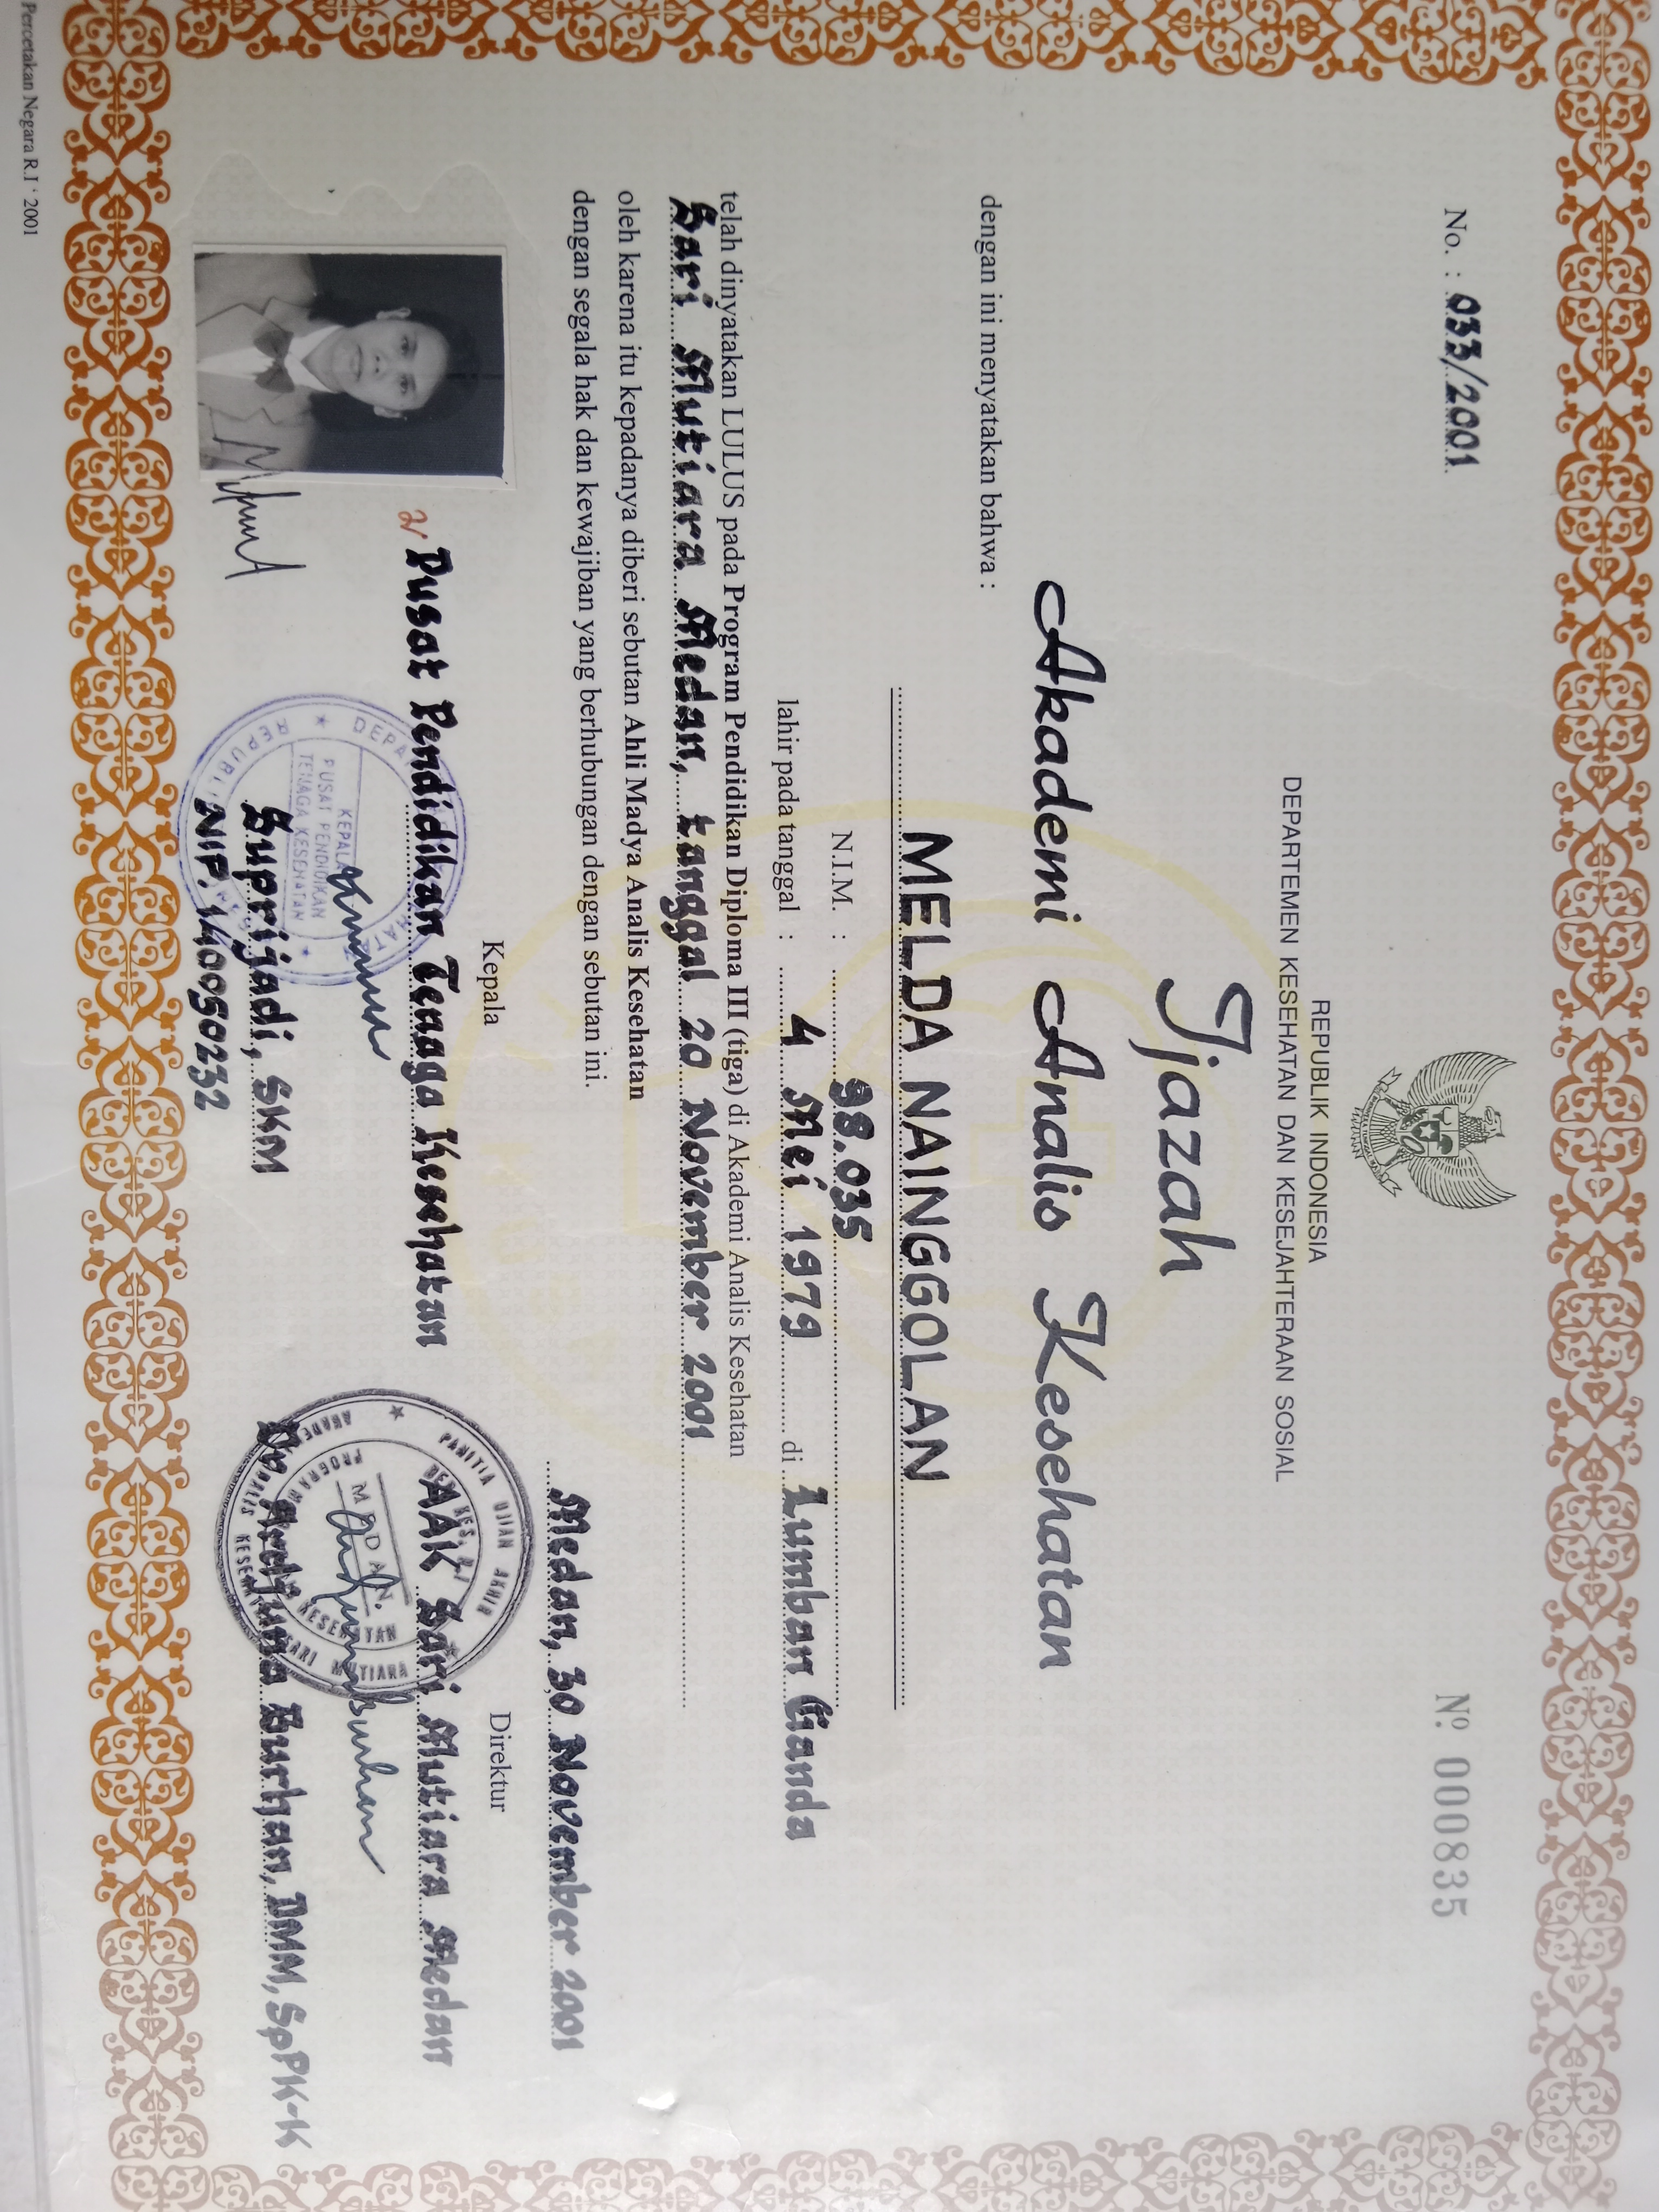 No. : 033/2001
Nº 000835
REPUBLIK INDONESIA
DEPARTEMEN KESEHATAN DAN KESEJAHTERAAN SOSIAL
Ijazah
Akademi Analis Kesehatan
dengan ini menyatakan bahwa :
MELDA NAINGGOLAN
N.I.M. : 98.035
lahir pada tanggal : 4 Mei 1979 di Lumban Ganda
telah dinyatakan LULUS pada Program Pendidikan Diploma III (tiga) di Akademi Analis Kesehatan
Sari Mutiara Medan, tanggal 20 November 2001
oleh karena itu kepadanya diberi sebutan Ahli Madya Analis Kesehatan
dengan segala hak dan kewajiban yang berhubungan dengan sebutan ini.
Medan, 30 November 2001
Kepala
Pusat Pendidikan Tenaga Kesehatan
KEPALA
PUSAT PENDIDIKAN
TENAGA KESEHATAN
Suprijadi, SKM
NIP. 140050232
Direktur
AAK Sari Mutiara Medan
PANITIA UJIAN AKHIR
MEDAN.
Dr. Ardjuna Burhan, DMM, SpPK-K
Percetakan Negara R.I ' 2001